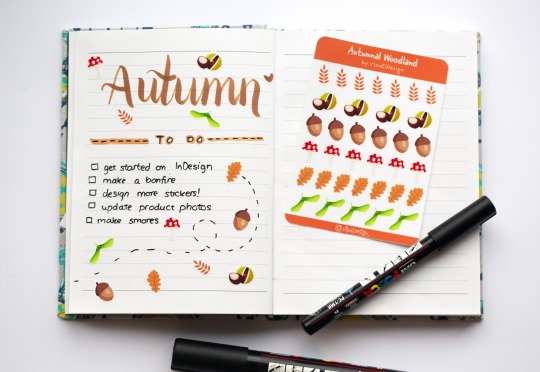 Autumn
TO DO
get started on InDesign
make a bonfire
design more stickers!
update product photos
make smores
Autumnal Woodland
POSCA